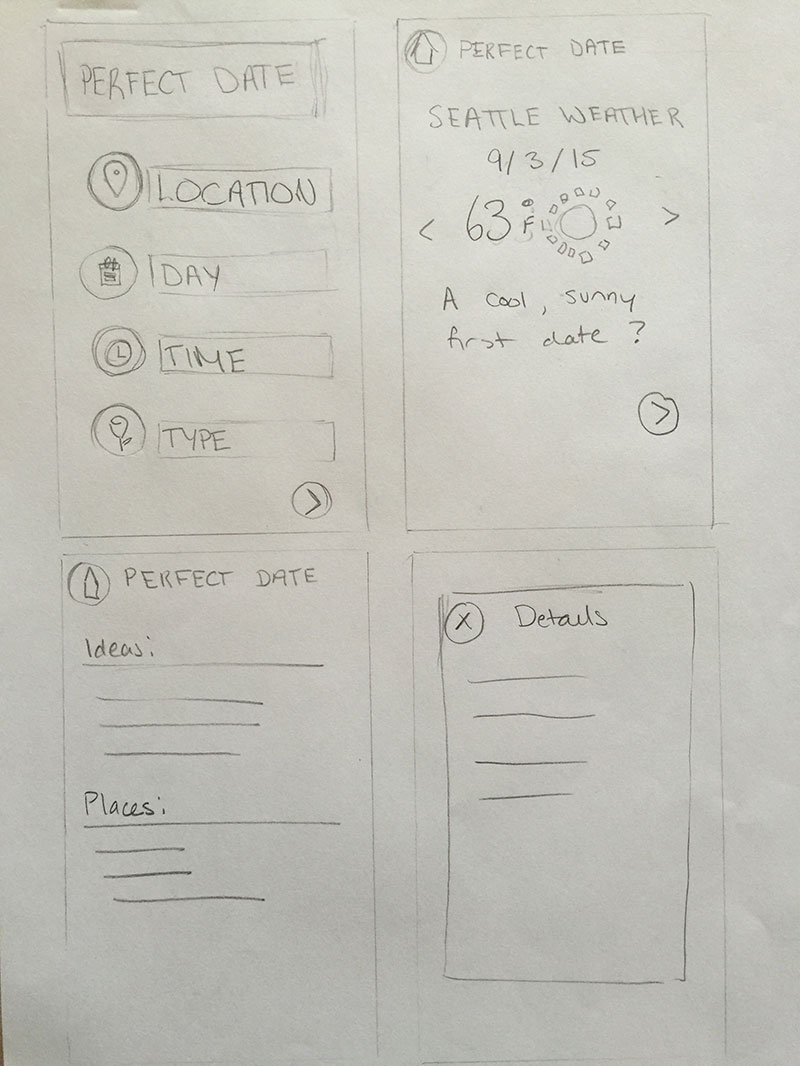 PERFECT DATE
LOCATION
DAY
TIME
TYPE
PERFECT DATE
SEATTLE WEATHER
9/3/15
< 63°F >
A cool, sunny
first date?
>
PERFECT DATE
Ideas:
Places:
X Details